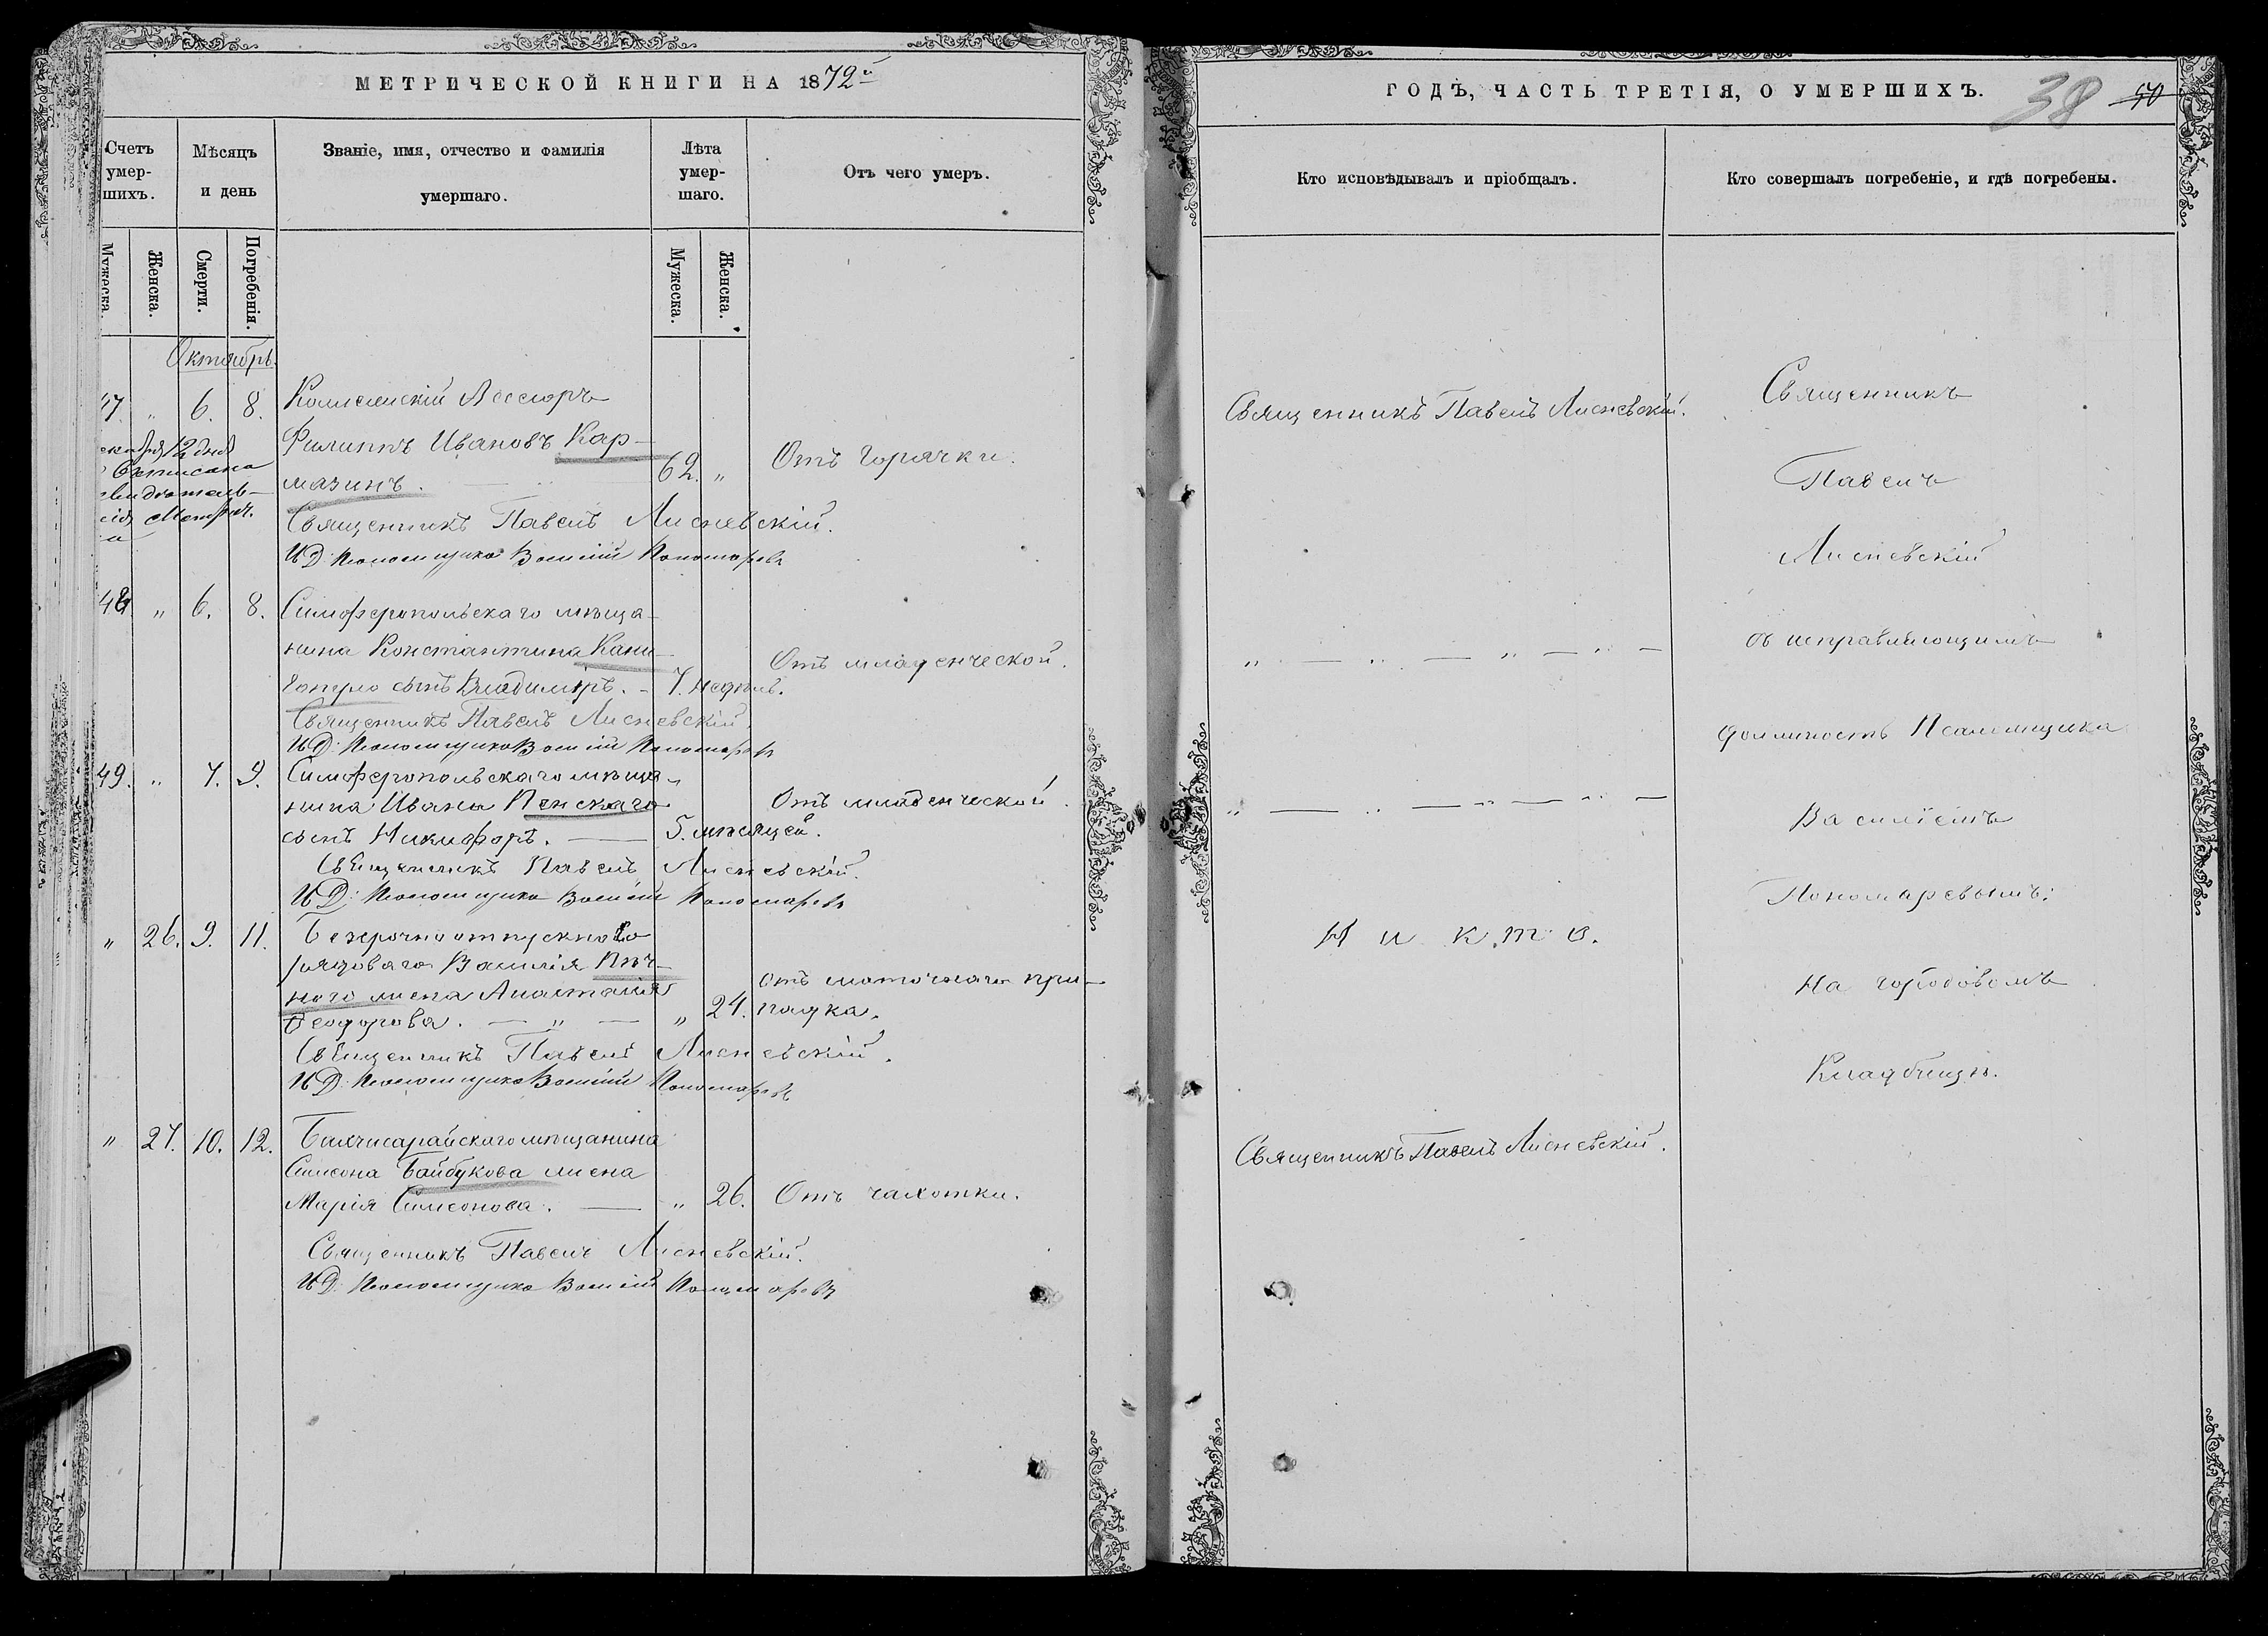 МЕТРИЧЕСКОЙ КНИГИ НА 1872й
Счетъ умер-шихъ.
Мѣсяцъ и день
Званіе, имя, отчество и фамилія умершаго.
Лѣта умер-шаго.
Отъ чего умеръ.
Мужеска.
Женска.
Смерти.
Погребенія.
Мужеска.
Женска.
Октябрь.
47. " 6. 8. Коллежскій Ассесоръ
Филиппъ Ивановъ Кар-
мазинъ. 62. " Отъ горячки.
12 дня
Священникъ Павелъ Лисневскій.
И Д: Псаломщика Василій Пономаревъ
48. " 6. 8. Симферопольскаго мѣща-
нина Константина Кани-
сынъ Владиміръ. 7. недѣль. Отъ младенческой.
Священникъ Павелъ Лисневскій.
И Д: Псаломщика Василій Пономаревъ
49. " 7. 9. Симферопольскаго мѣща-
нина Ивана Пенскаго
сынъ Никифоръ. 5. мѣсяцей. Отъ младенческой.
Священникъ Павелъ Лисневскій.
И Д: Псаломщика Василій Пономаревъ
" 26. 9. 11. Безсрочноотпускного
рядоваго Василія
жена Анастасія
Ѳеодорова. — " — " 24. Отъ маточнаго при-
падка.
Священникъ Павелъ Лисневскій.
И Д: Псаломщика Василій Пономаревъ
" 27. 10. 12. Бахчисарайскаго мѣщанина
Симеона Байбукова жена
Марія Симеонова. — " 26. Отъ чахотки.
Священникъ Павелъ Лисневскій.
И Д: Псаломщика Василій Пономаревъ
ГОДЪ, ЧАСТЬ ТРЕТІЯ, О УМЕРШИХЪ.
38 40
Кто исповѣдывалъ и пріобщалъ.
Кто совершалъ погребеніе, и гдѣ погребены.
Священникъ Павелъ Лисневскій.
" — " — " — " —
" — " — " — " —
Никто.
Священникъ Павелъ Лисневскій.
Священникъ
Павелъ
Лисневскій
съ исправляющимъ
должность Псаломщика
Василіемъ
Пономаревымъ:
На городовомъ
Кладбищѣ.